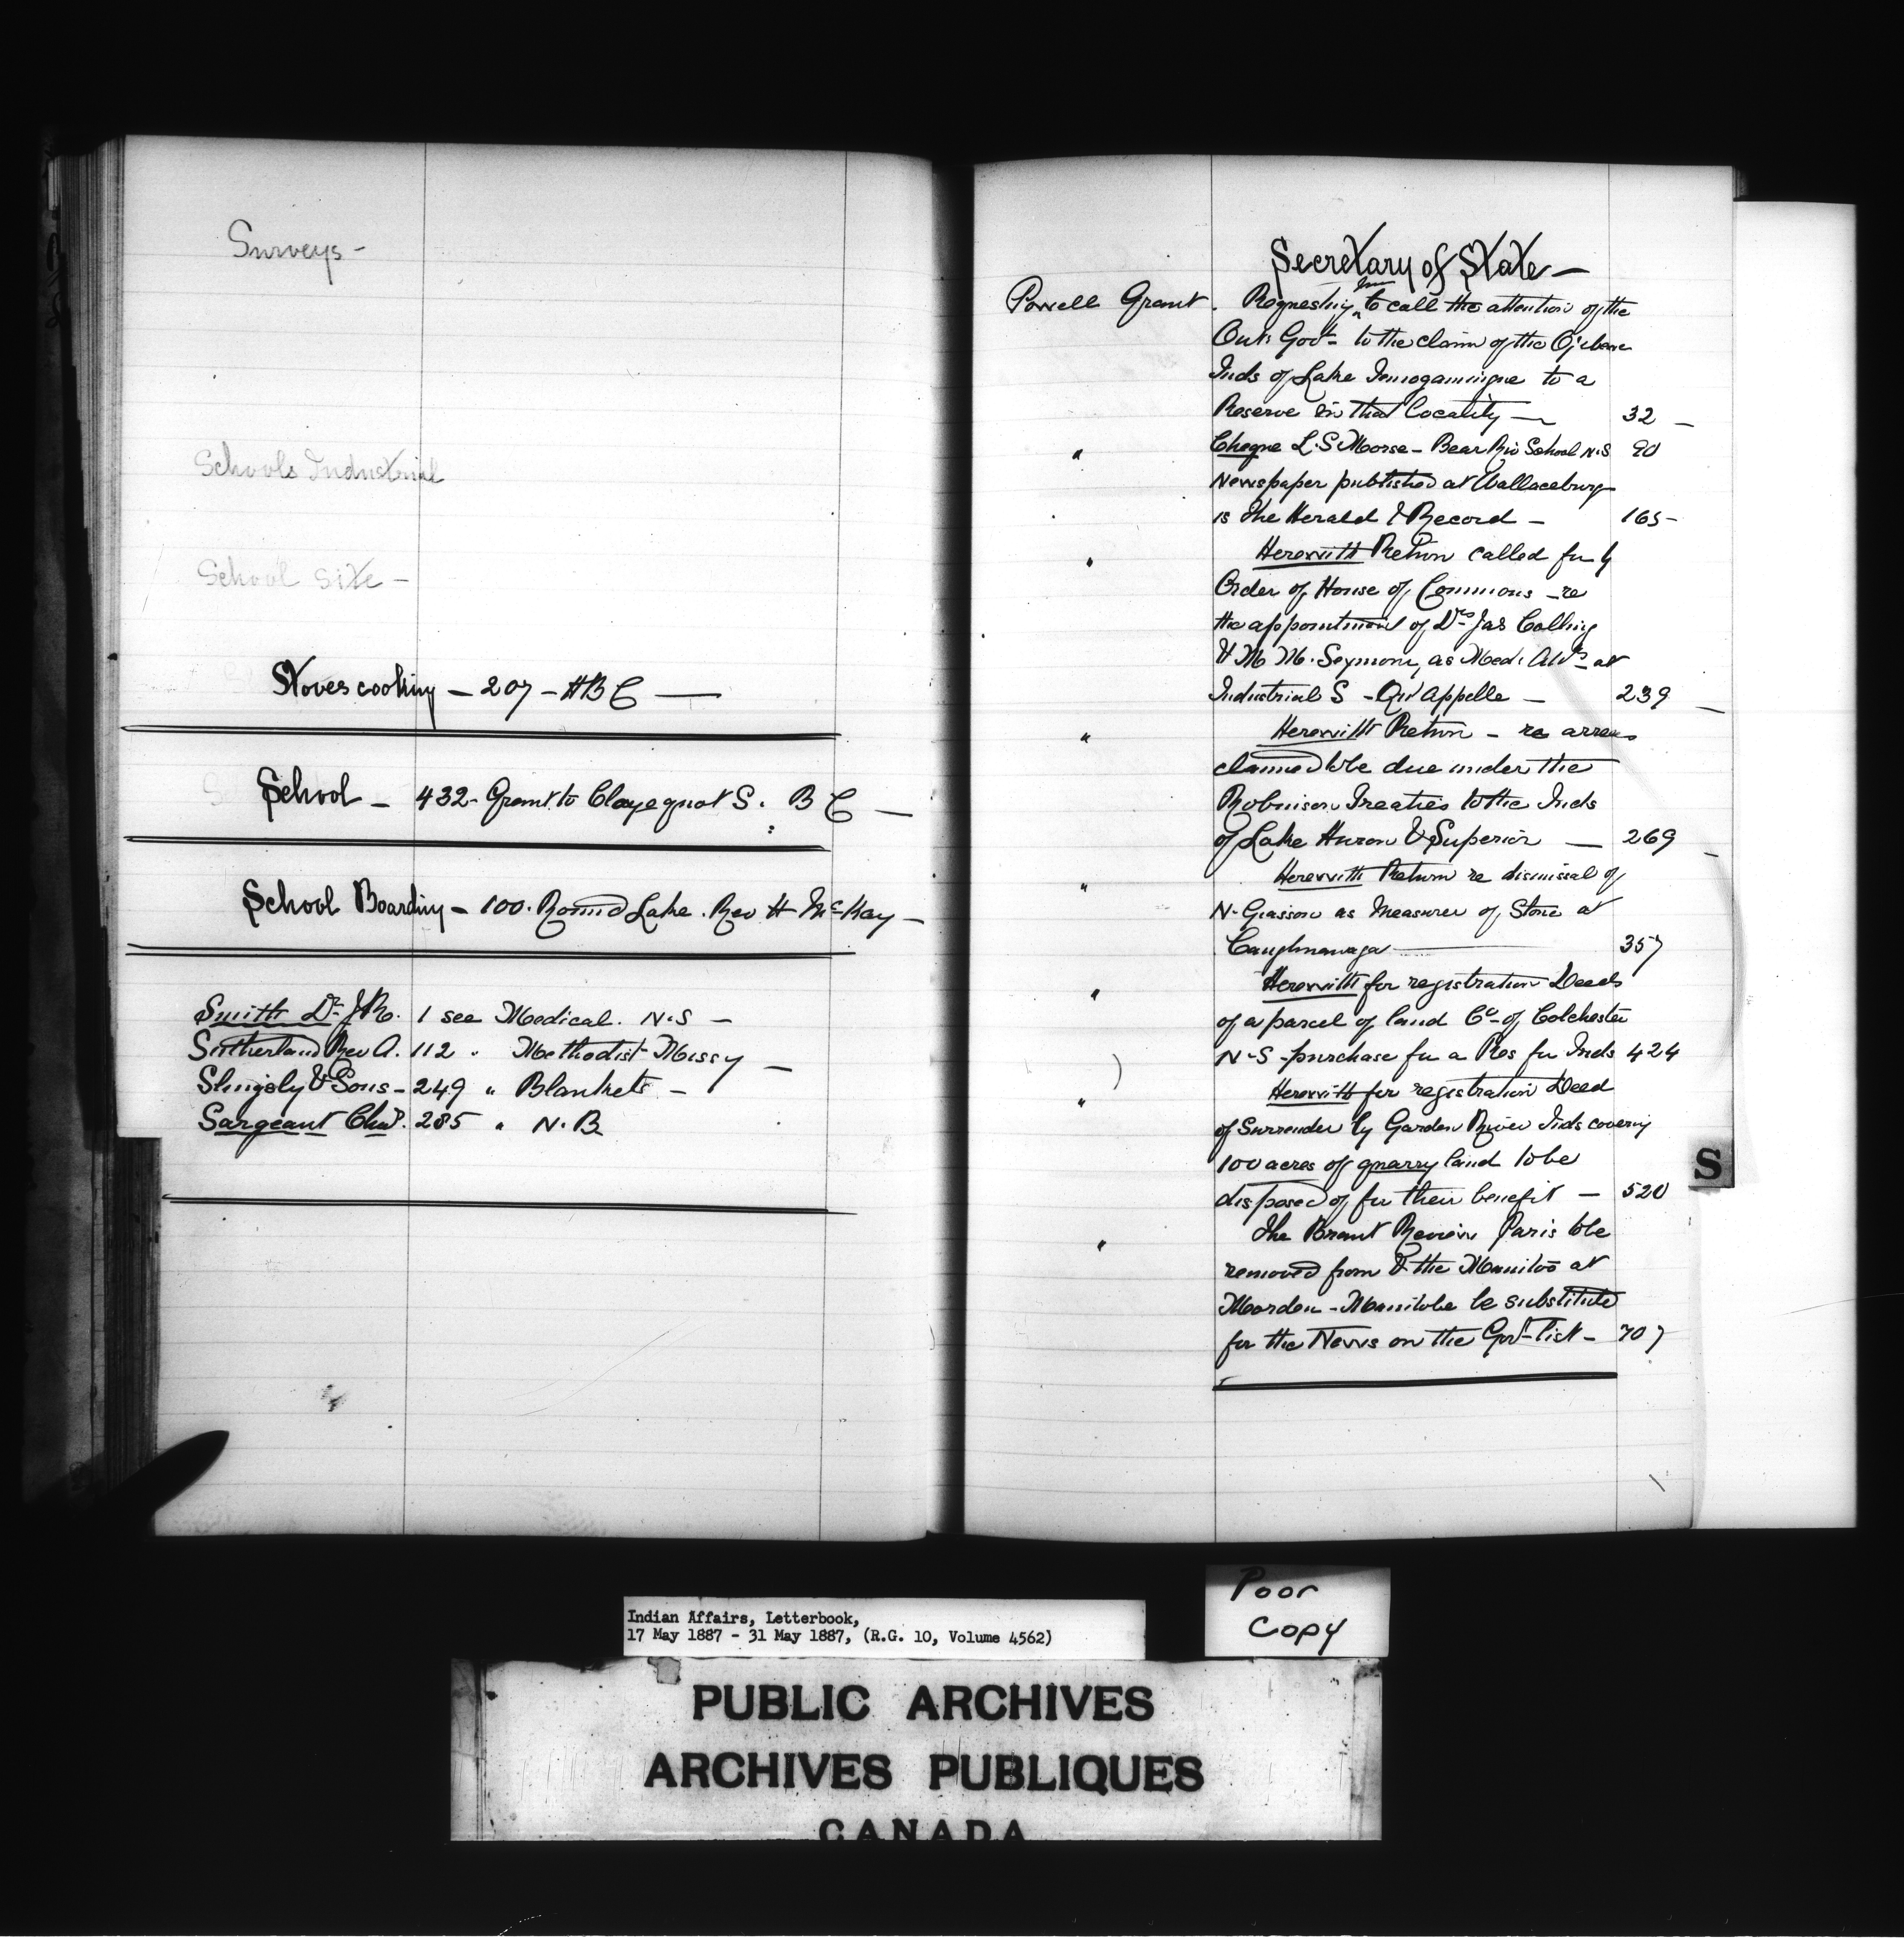 Surveys -
Schools Industrial
School Site -
Stoves cooking - 207 - H B C —
School - 432 - Grant to Clayoquot S. B C —
School Boarding - 100. Round Lake. Rev H McKay -
Smith Dr J R. 1 see Medical. N.S -
Sutherland Rev A. 112 " Methodist Missy -
Slingsby & Sons - 249 " Blankets -
Sargeant Chas. 285 " N. B
Secretary of State -
Powell Grant. Requesting him to call the attention of the
Ont: Govt - to the claim of the Ojebewe
Inds of Lake Temogamingue to a
Reserve in that locality - 32 -
" Cheque L. S Morse - Bear Riv School N.S 90
Newspaper published at Wallaceburg
is the Herald & Record - 165 -
" Herewith Return called for by
Order of House of Commons - re
the appointment of Drs Jas
& M M. Seymour, as Med: at
Industrial S - Qu'Appelle - 239
" Herewith Return - re arrears
claimed to be due under the
Robinson Treaties to the Inds
of Lake Huron & Superior — 269
" Herewith Return re dismissal of
N. Giasson as Measurer of Stone at
Caughnawaga 357
" Herewith for registration Deeds
of a parcel of land Co - of Colchester
N-S - purchase for a Res for Inds 424
" Herewith for registration Deed
of Surrender by Garden River Inds covering
100 acres of quarry land to be
disposed of for their benefit - 520
" The Brant Review Paris to be
removed from & the Manitoa at
Morden - Manitoba be substituted
for the News on the Govt - list - 707
S
Indian Affairs, Letterbook,
17 May 1887 - 31 May 1887, (R.G. 10, Volume 4562)
Poor
Copy
PUBLIC ARCHIVES
ARCHIVES PUBLIQUES
CANADA